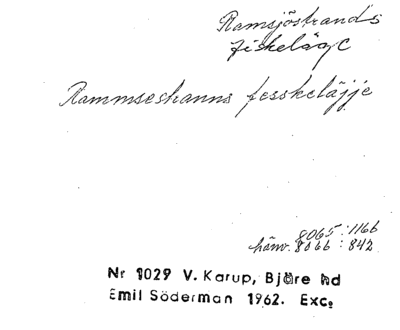 Ramsjöstrands
fiskeläge
Rammseshanns fesskeläjje
8065:1166
hänv. 8066:842
Nr 1029 V. Karup, Bjäre hd
Emil Söderman 1962. Exc.